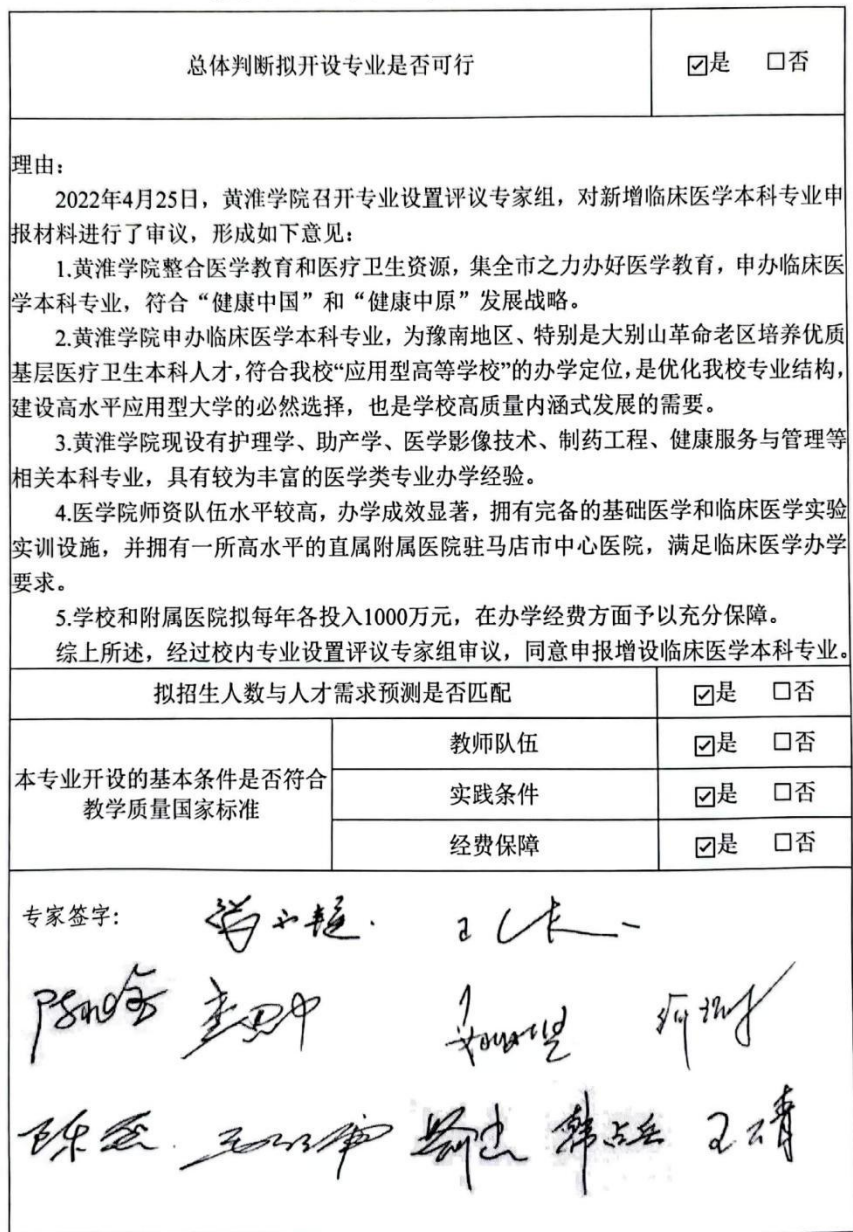 总体判断拟开设专业是否可行 ☑是 □否
理由：
2022年4月25日，黄淮学院召开专业设置评议专家组，对新增临床医学本科专业申
报材料进行了审议，形成如下意见：
1.黄淮学院整合医学教育和医疗卫生资源，集全市之力办好医学教育，申办临床医
学本科专业，符合“健康中国”和“健康中原”发展战略。
2.黄淮学院申办临床医学本科专业，为豫南地区、特别是大别山革命老区培养优质
基层医疗卫生本科人才，符合我校“应用型高等学校”的办学定位，是优化我校专业结构，
建设高水平应用型大学的必然选择，也是学校高质量内涵式发展的需要。
3.黄淮学院现设有护理学、助产学、医学影像技术、制药工程、健康服务与管理等
相关本科专业，具有较为丰富的医学类专业办学经验。
4.医学院师资队伍水平较高，办学成效显著，拥有完备的基础医学和临床医学实验
实训设施，并拥有一所高水平的直属附属医院驻马店市中心医院，满足临床医学办学
要求。
5.学校和附属医院拟每年各投入1000万元，在办学经费方面予以充分保障。
综上所述，经过校内专业设置评议专家组审议，同意申报增设临床医学本科专业。
拟招生人数与人才需求预测是否匹配 ☑是 □否
本专业开设的基本条件是否符合
教学质量国家标准
教师队伍 ☑是 □否
实践条件 ☑是 □否
经费保障 ☑是 □否
专家签字：
韩占兵 王青